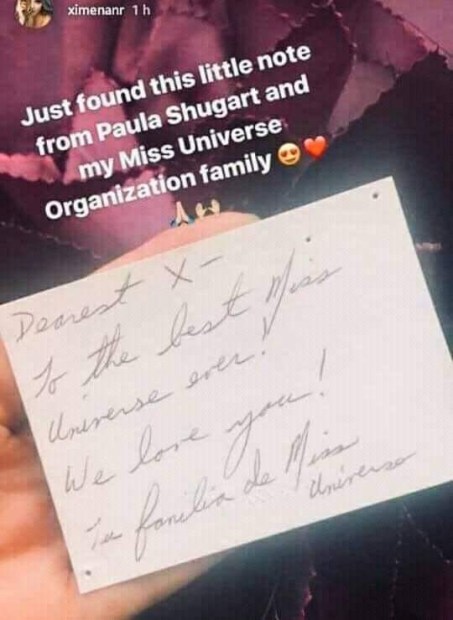 ximenanr 1 h
Just found this little note
from Paula Shugart and
my Miss Universe
Organization family 😍❤️
🙏🏻🙌🏻
Dearest X-
To the best Miss
Universe ever!
We love you!
Tu familia de Miss
Universe